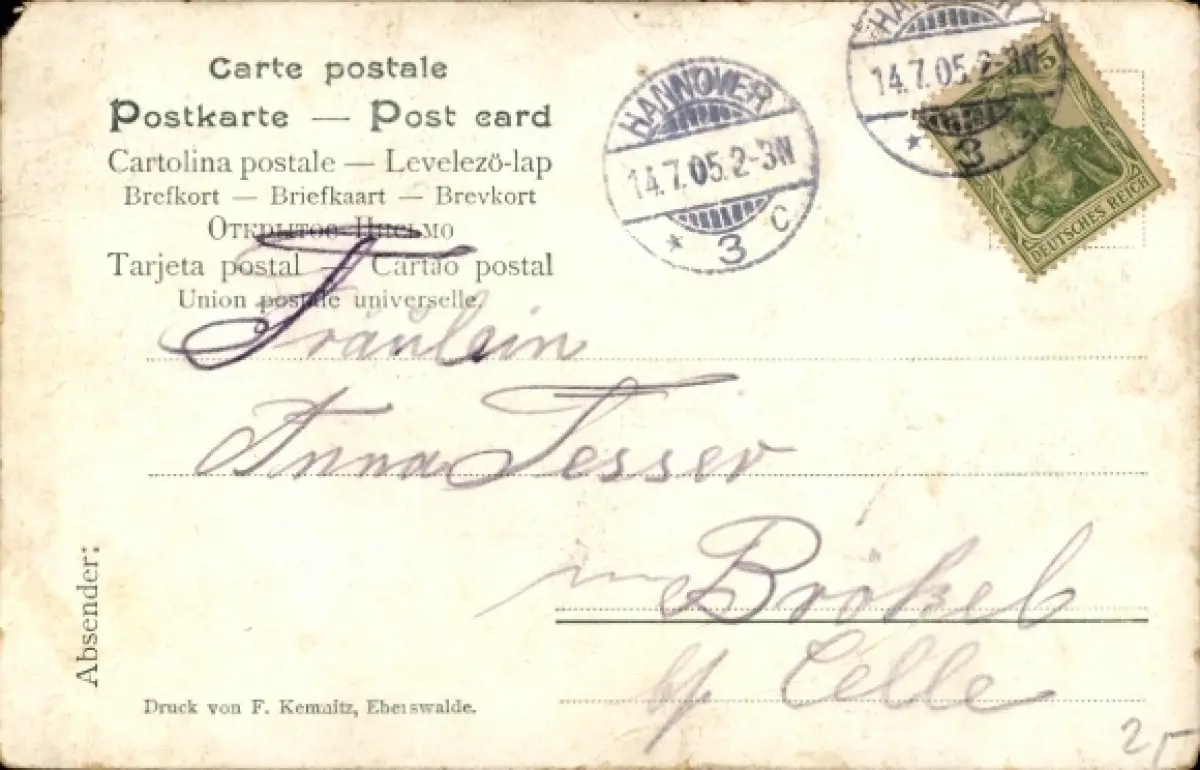 Carte postale
Postkarte — Post card
Cartolina postale — Levelezö-lap
Brefkort — Briefkaart — Brevkort
Открытое Письмо
Tarjeta postal — Cartão postal
Union postale universelle.
HANNOVER
14.7.05.2-3N
* 3 c
HANNOVER
14.7.05.2-3N
* 3
5
DEUTSCHES REICH
Fräulein
Anna Tesser
in Brökel
b/ Celle
Absender:
Druck von F. Kemnitz, Eberswalde.